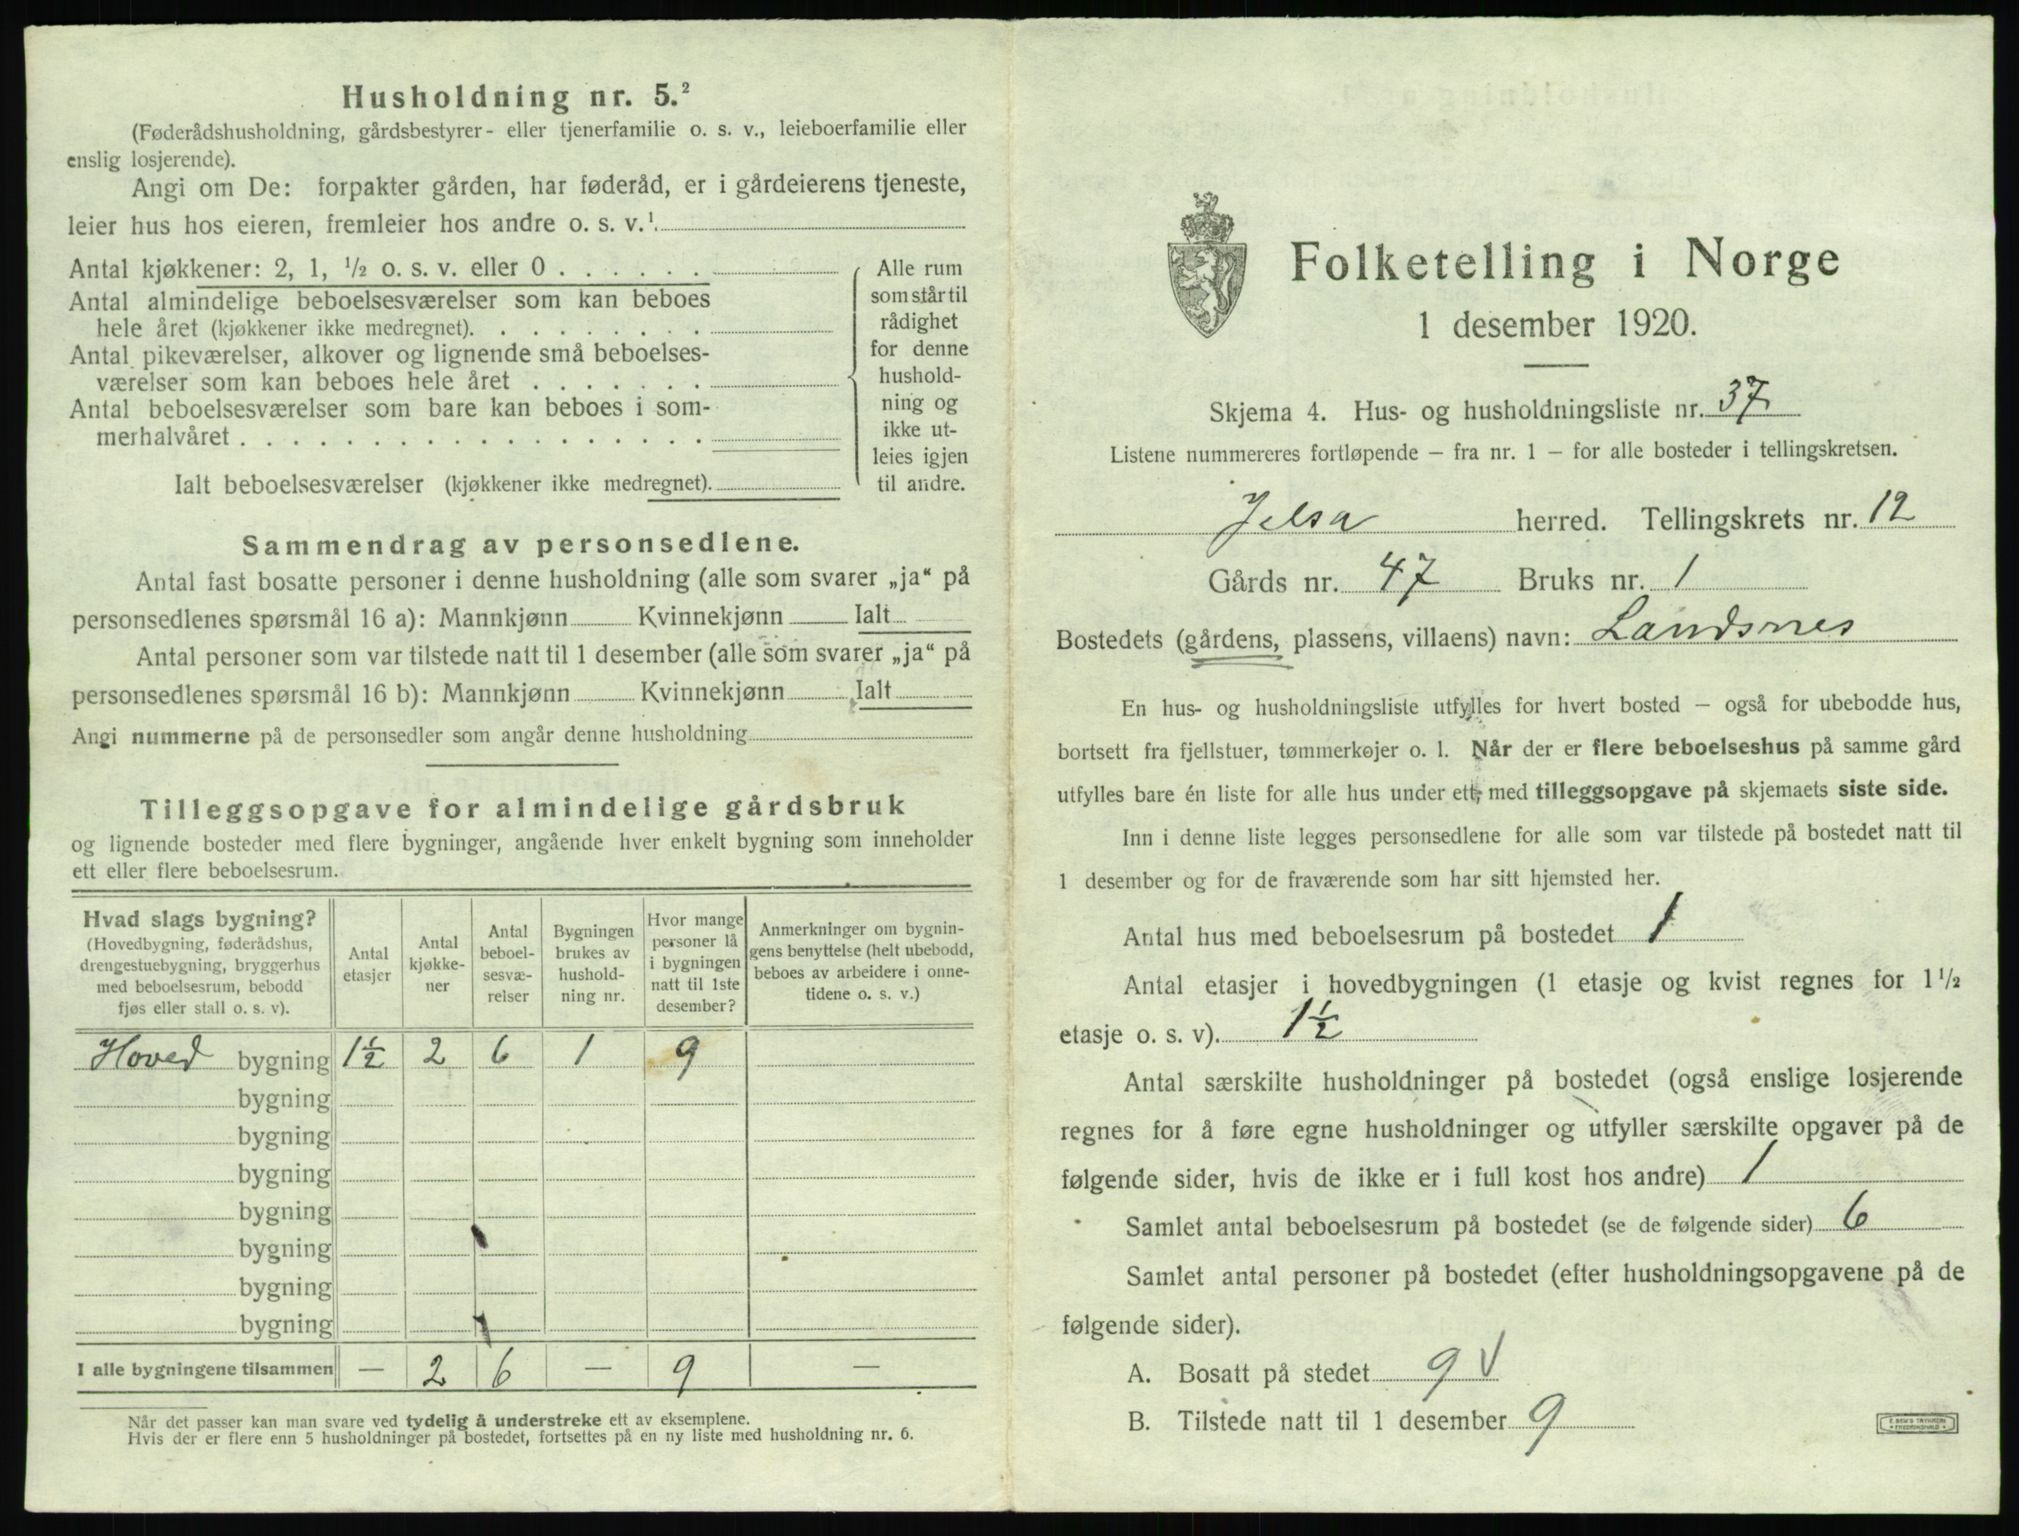 Husholdning nr. 5.²
(Føderådshusholdning, gårdsbestyrer- eller tjenerfamilie o. s. v., leieboerfamilie eller
enslig losjerende).
Angi om De: forpakter gården, har føderåd, er i gårdeierens tjeneste,
leier hus hos eieren, fremleier hos andre o. s. v.¹
Antal kjøkkener: 2, 1, ½ o. s. v. eller 0 . . . . . .
Antal almindelige beboelsesværelser som kan beboes
hele året (kjøkkener ikke medregnet). . . . . . . . .
Antal pikeværelser, alkover og lignende små beboelses-
værelser som kan beboes hele året . . . . . . .
Antal beboelsesværelser som bare kan beboes i som-
merhalvåret . . . . . . . . . . . . . . . . . .
Ialt beboelsesværelser (kjøkkener ikke medregnet).
Alle rum
som står til
rådighet
for denne
hushold-
ning og
ikke ut-
leies igjen
til andre.
Sammendrag av personsedlene.
Antal fast bosatte personer i denne husholdning (alle som svarer „ja“ på
personsedlenes spørsmål 16 a): Mannkjønn Kvinnekjønn Ialt
Antal personer som var tilstede natt til 1 desember (alle som svarer „ja“ på
personsedlenes spørsmål 16 b): Mannkjønn Kvinnekjønn Ialt
Angi nummerne på de personsedler som angår denne husholdning
Tilleggsopgave for almindelige gårdsbruk
og lignende bosteder med flere bygninger, angående hver enkelt bygning som inneholder
ett eller flere beboelsesrum.
Hvad slags bygning?
(Hovedbygning, føderådshus,
drengestuebygning, bryggerhus
med beboelsesrum, bebodd
fjøs eller stall o. s. v).
Antal
etasjer
Antal
kjøkke-
ner
Antal
beboel-
sesvæ-
relser
Bygningen
brukes av
hushold-
ning nr.
Hvor mange
personer lå
i bygningen
natt til 1ste
desember?
Anmerkninger om bygnin-
gens benyttelse (helt ubebodd,
beboes av arbeidere i onne-
tidene o. s. v.)
Hoved bygning 1½ 2 6 1 9
bygning
bygning
bygning
bygning
bygning
bygning
bygning
I alle bygningene tilsammen — 2 6 — 9 —
Når det passer kan man svare ved tydelig å understreke ett av eksemplene.
Hvis der er flere enn 5 husholdninger på bostedet, fortsettes på en ny liste med husholdning nr. 6.
Folketelling i Norge
1 desember 1920.
Skjema 4. Hus- og husholdningsliste nr. 37
Listene nummereres fortløpende – fra nr. 1 – for alle bosteder i tellingskretsen.
Jelsa herred. Tellingskrets nr. 12
Gårds nr. 47 Bruks nr. 1
Bostedets (gårdens, plassens, villaens) navn: Landsnes
En hus- og husholdningsliste utfylles for hvert bosted – også for ubebodde hus,
bortsett fra fjellstuer, tømmerkojer o. l. Når der er flere beboelseshus på samme gård
utfylles bare én liste for alle hus under ett, med tilleggsopgave på skjemaets siste side.
Inn i denne liste legges personsedlene for alle som var tilstede på bostedet natt til
1 desember og for de fraværende som har sitt hjemsted her.
Antal hus med beboelsesrum på bostedet 1
Antal etasjer i hovedbygningen (1 etasje og kvist regnes for 1½
etasje o. s. v). 1½
Antal særskilte husholdninger på bostedet (også enslige losjerende
regnes for å føre egne husholdninger og utfyller særskilte opgaver på de
følgende sider, hvis de ikke er i full kost hos andre) 1
Samlet antal beboelsesrum på bostedet (se de følgende sider) 6
Samlet antal personer på bostedet (efter husholdningsopgavene på de
følgende sider).
A. Bosatt på stedet 9 V
B. Tilstede natt til 1 desember 9